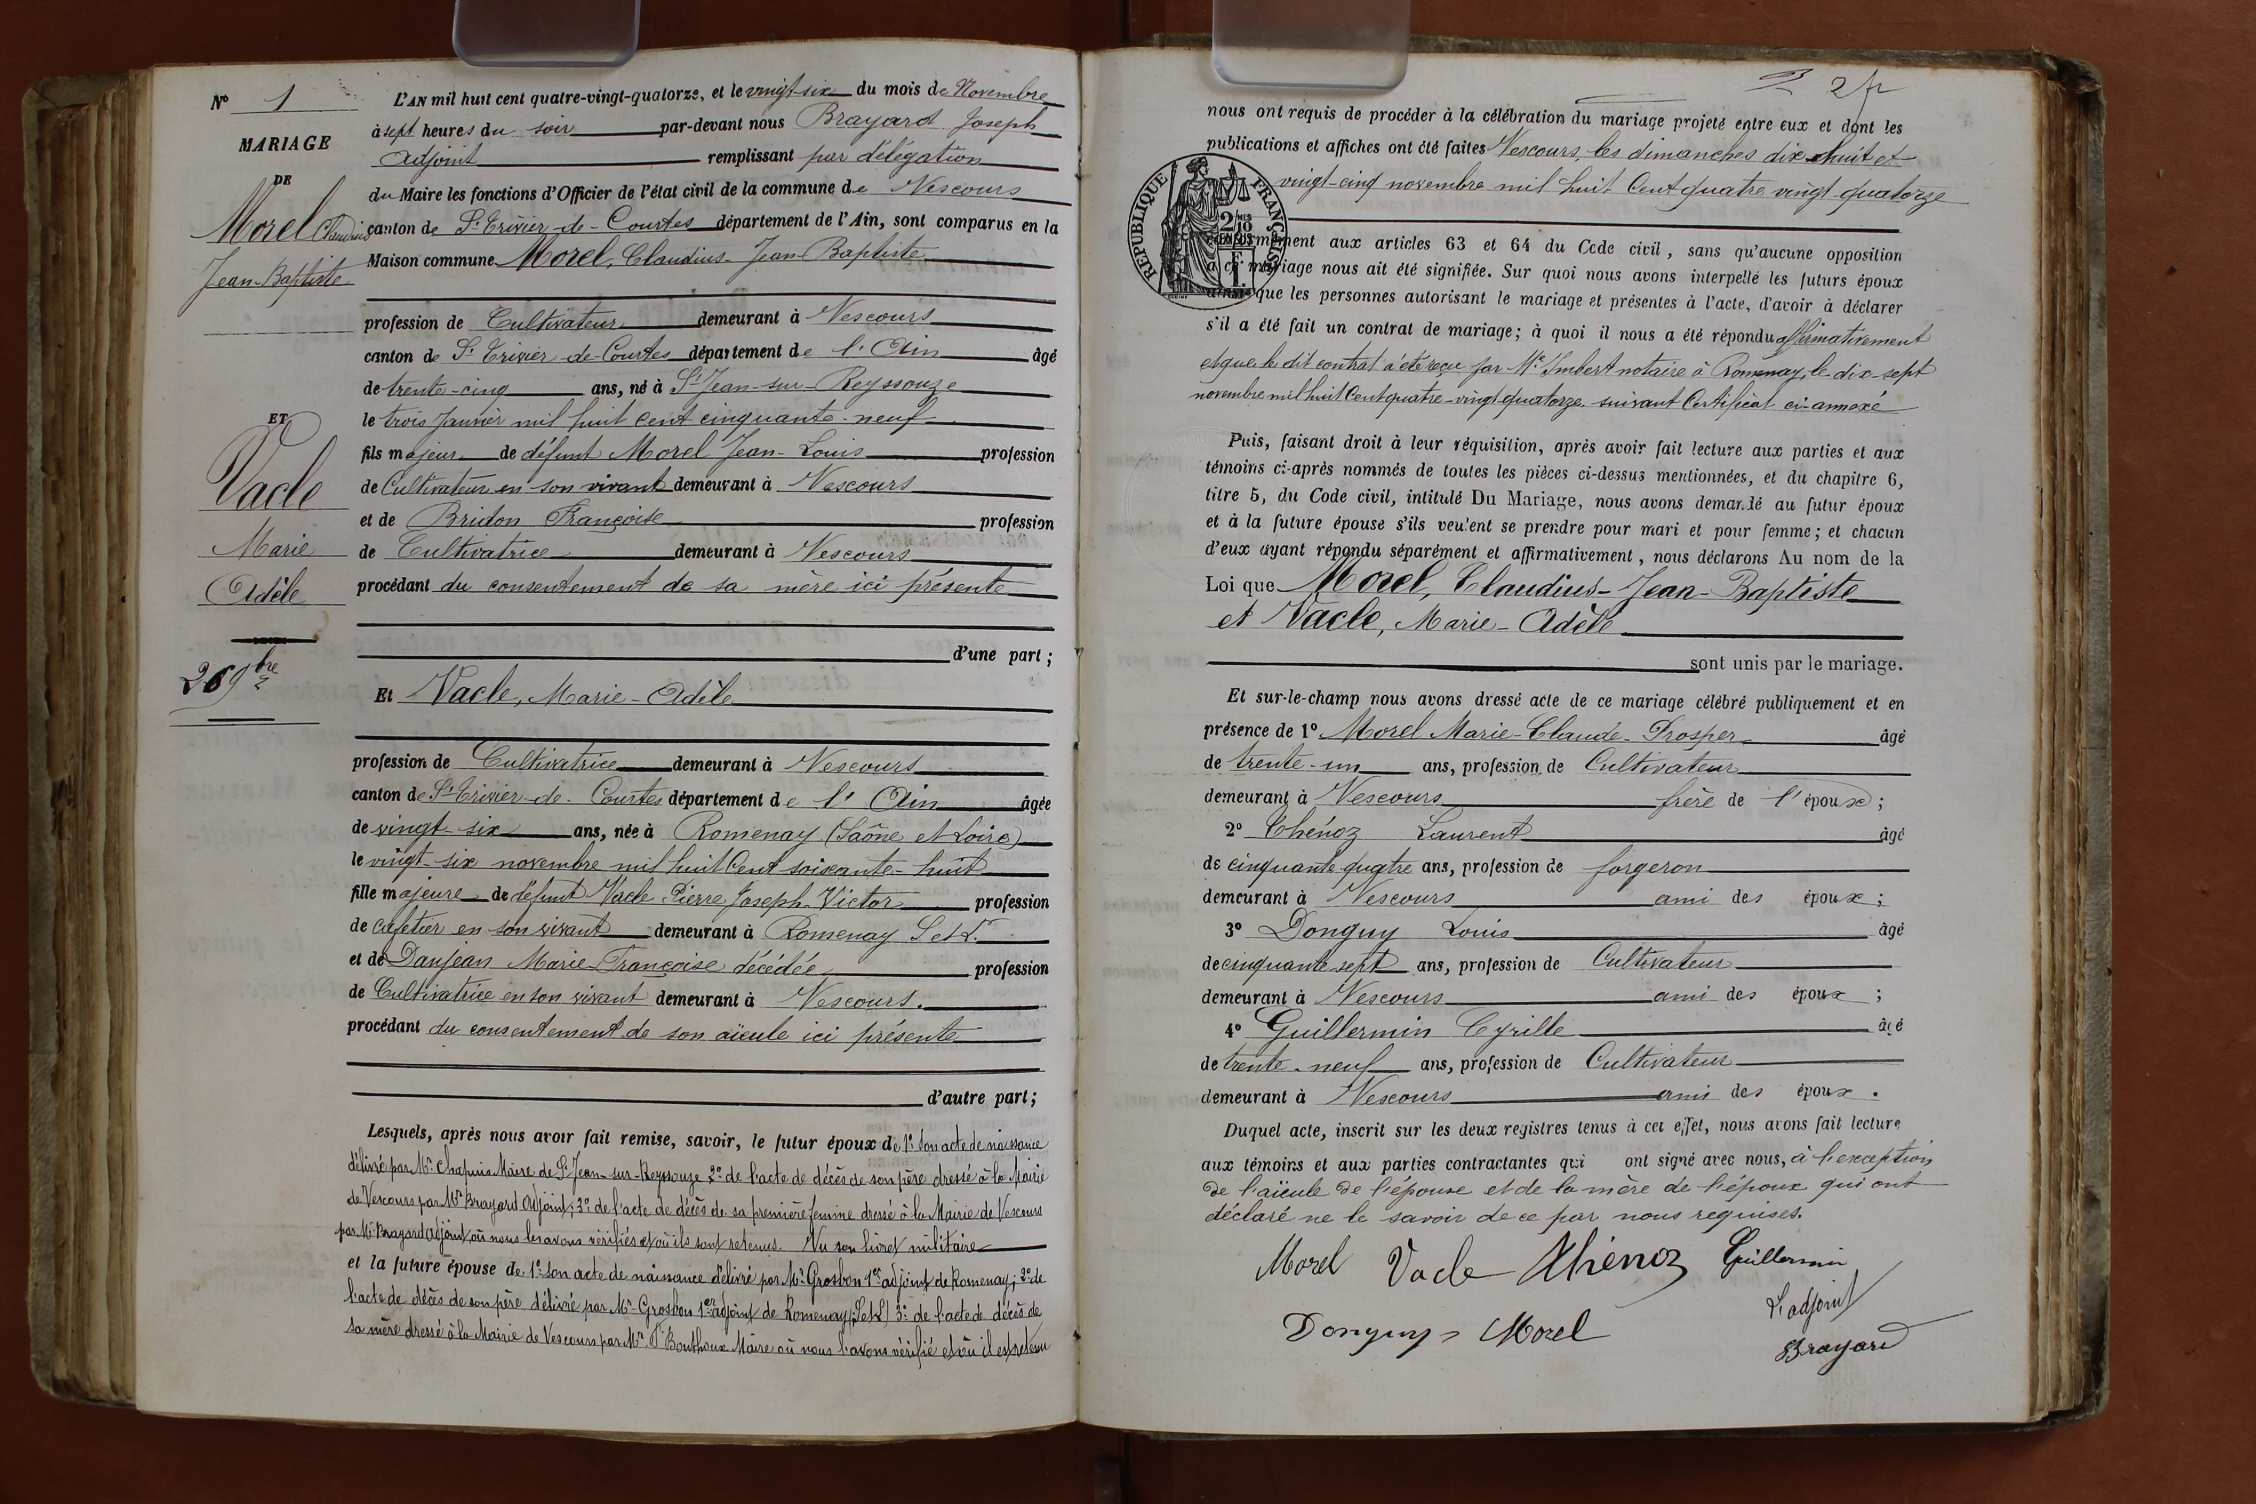 N° 1
MARIAGE
DE
Morel Claudius
Jean-Baptiste
ET
Vacle
Marie
Adèle
26 9bre
L'AN mil huit cent quatre-vingt-quatorze, et le vingt six du mois de Novembre
à sept heures du soir par-devant nous Brayard Joseph
Adjoint remplissant par délégation
du Maire les fonctions d'Officier de l'état civil de la commune de Vescours
canton de St Trivier-de-Courtes département de l'Ain, sont comparus en la
Maison commune Morel, Claudius-Jean-Baptiste
profession de Cultivateur demeurant à Vescours
canton de St Trivier-de-Courtes département de l'Ain âgé
de trente-cinq ans, né à St Jean-sur-Reyssouze
le trois Janvier mil huit cent cinquante-neuf
fils majeur de défunt Morel Jean-Louis profession
de Cultivateur en son vivant demeurant à Vescours
et de Bridon Françoise profession
de Cultivatrice demeurant à Vescours
procédant du consentement de sa mère ici présente
d'une part;
Et Vacle, Marie-Adèle
profession de Cultivatrice demeurant à Vescours
canton de St Trivier-de-Courtes département de l'Ain âgée
de vingt-six ans, née à Romenay (Saône et Loire)
le vingt-six novembre mil huit Cent soixante-huit
fille majeure de défunt Vacle Pierre Joseph-Victor profession
de cafetier en son vivant demeurant à Romenay S et L.
et de Danjean Marie Françoise décédée profession
de Cultivatrice en son vivant demeurant à Vescours.
procédant du consentement de son aïeule ici présente
d'autre part;
Lesquels, après nous avoir fait remise, savoir, le futur époux de 1° son acte de naissance
délivré par Mr Chapuis Maire de St Jean-sur-Reyssouze 2° de l'acte de décès de son père dressé à la Mairie
de Vescours par Mr Brayard Adjoint; 3° de l'acte de décès de sa première femme dressé à la Mairie de Vescours
par Mr Brayard Adjoint où nous les avons vérifiés et où ils sont retenus. Vu son livret militaire
et la future épouse de 1° son acte de naissance délivré par Mr Grosbon 1er adjoint de Romenay; 2° de
l'acte de décès de son père délivré par Mr Grosbon 1er adjoint de Romenay (S et L) 3° de l'acte de décès de
sa mère dressé à la Mairie de Vescours par Mr Bonthoux Maire où nous l'avons vérifié et où il est retenu
2
nous ont requis de procéder à la célébration du mariage projeté entre eux et dont les
publications et affiches ont été faites Vescours, les dimanches dix-huit et
vingt-cinq novembre mil huit Cent quatre vingt-quatorze
RÉPUBLIQUE FRANÇAISE
conformément aux articles 63 et 64 du Code civil, sans qu'aucune opposition
à ce mariage nous ait été signifiée. Sur quoi nous avons interpellé les futurs époux
ainsi que les personnes autorisant le mariage et présentes à l'acte, d'avoir à déclarer
s'il a été fait un contrat de mariage; à quoi il nous a été répondu affirmativement
et que le dit contrat a été reçu par Me Imbert notaire à Romenay, le dix-sept
novembre mil huit Cent quatre-vingt quatorze suivant Certificat ci-annexé
Puis, faisant droit à leur réquisition, après avoir fait lecture aux parties et aux
témoins ci-après nommés de toutes les pièces ci-dessus mentionnées, et du chapitre 6,
titre 5, du Code civil, intitulé Du Mariage, nous avons demandé au futur époux
et à la future épouse s'ils veulent se prendre pour mari et pour femme; et chacun
d'eux ayant répondu séparément et affirmativement, nous déclarons Au nom de la
Loi que Morel, Claudius-Jean-Baptiste
et Vacle, Marie-Adèle
sont unis par le mariage.
Et sur-le-champ nous avons dressé acte de ce mariage célébré publiquement et en
présence de 1° Morel Marie-Claude-Prosper âgé
de trente-un ans, profession de Cultivateur
demeurant à Vescours frère de l'époux;
2° Thénoz Laurent âgé
de cinquante quatre ans, profession de forgeron
demeurant à Vescours ami des époux;
3° Donguy Louis âgé
de cinquante sept ans, profession de Cultivateur
demeurant à Vescours ami des époux;
4° Guillermin Cyrille âgé
de trente-neuf ans, profession de Cultivateur
demeurant à Vescours ami des époux.
Duquel acte, inscrit sur les deux registres tenus à cet effet, nous avons fait lecture
aux témoins et aux parties contractantes qui ont signé avec nous, à l'exception
de l'aïeule de l'épouse et de la mère de l'époux qui ont
déclaré ne le savoir de ce par nous requises.
Morel Vacle Thénoz Guillermin
L'adjoint
Donguy Morel
Brayard